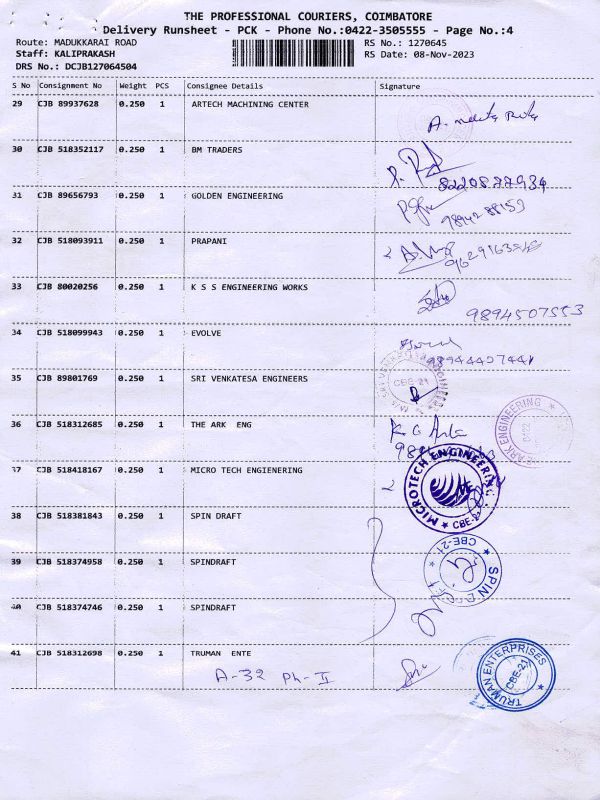 THE PROFESSIONAL COURIERS, COIMBATORE
Delivery Runsheet - PCK - Phone No.:0422-3505555 - Page No.:4
Route: MADUKKARAI ROAD RS No.: 1270645
Staff: KALIPRAKASH RS Date: 08-Nov-2023
DRS No.: DCJB127064504
S No Consignment No Weight PCS Consignee Details Signature
29 CJB 89937628 0.250 1 ARTECH MACHINING CENTER
30 CJB 518352117 0.250 1 BM TRADERS
8220877934
31 CJB 89656793 0.250 1 GOLDEN ENGINEERING
9894288153
32 CJB 518093911 0.250 1 PRAPANI
33 CJB 80020256 0.250 1 K S S ENGINEERING WORKS
9894507553
34 CJB 518099943 0.250 1 EVOLVE
35 CJB 89801769 0.250 1 SRI VENKATESA ENGINEERS
CBE-21
36 CJB 518312685 0.250 1 THE ARK ENG
ARK ENGINEERING
37 CJB 518418167 0.250 1 MICRO TECH ENGIENERING
MICROTECH ENGINEERING CBE-21
38 CJB 518381843 0.250 1 SPIN DRAFT
CBE-21 SPIN
39 CJB 518374958 0.250 1 SPINDRAFT
40 CJB 518374746 0.250 1 SPINDRAFT
41 CJB 518312698 0.250 1 TRUMAN ENTE
A-32 Ph-II
TRUMAN ENTERPRISES CBE-21